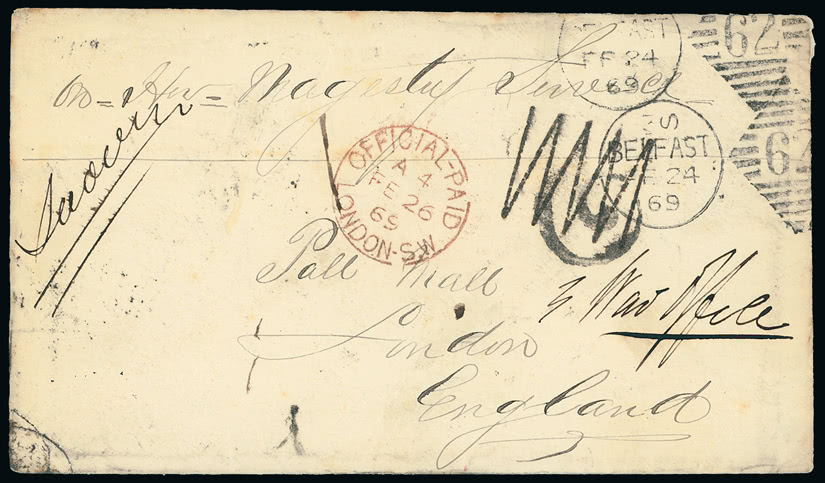 BELFAST
FE 24
69
62
On = Her = Magesty Service
BELFAST
FE 24
69
62
OFFICIAL-PAID
A 4
FE 26
69
LONDON-S.W
Pall Mall
War Office
London
England